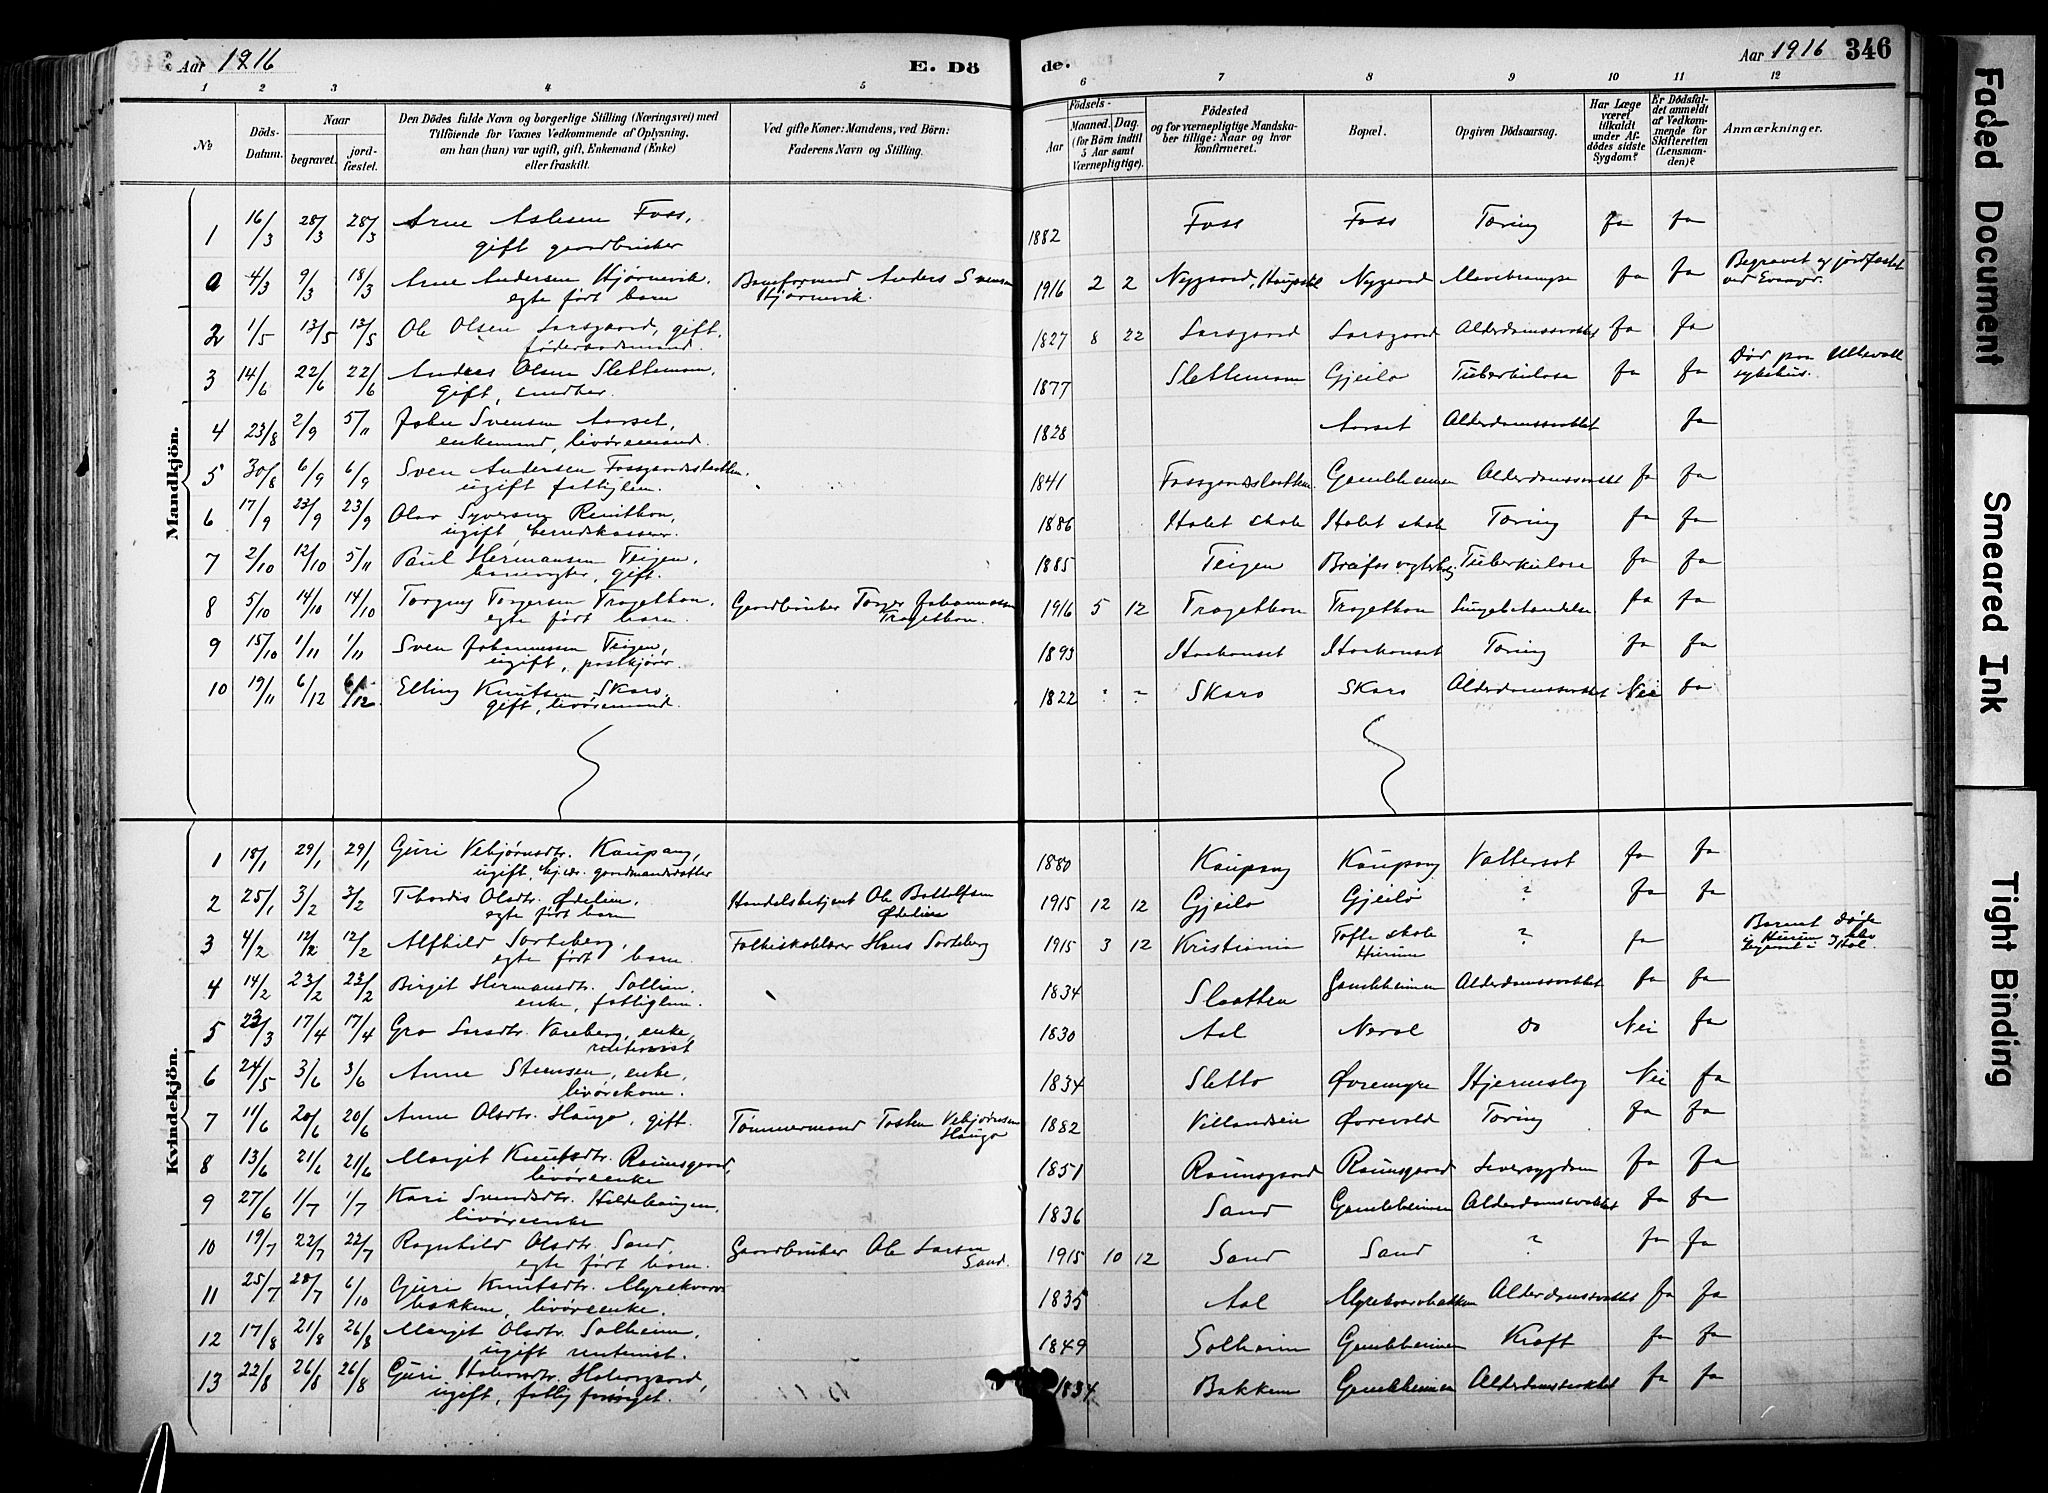 Aar 1916
E. Dö
de.
Aar 1916
346
1 2 3 4 5 6 7 8 9 10 11 12
№
Döds-Datum.
Naar
begravet.
jord-fæstet.
Den Dödes fulde Navn og borgerlige Stilling (Næringsvei) med
Tilföiende for Voxnes Vedkommende af Oplysning,
om han (hun) var ugift, gift, Enkemand (Enke)
eller fraskilt.
Ved gifte Koner: Mandens, ved Börn:
Faderens Navn og Stilling.
Födsels-
Aar
Maaned. Dag.
(for Börn indtil
5 Aar samt
Værnepligtige).
Födested
og for værnepligtige Mandska-
ber tillige: Naar og hvor
konfirmeret.
Bopæl.
Opgiven Dödsaarsag.
Har Læge
været
tilkaldt
under Af-
dödes sidste
Sygdom?
Er Dödsfal-
det anmeldt
af Vedkom-
mende for
Skifteretten
(Lensman-
den)?
Anmærkninger.
Mandkjön.
1 16/3 28/3 28/3 Arne Aslesen Foss, 1882 Foss Foss Tæring ja ja
gift gardbruker
a 4/3 9/3 18/3 Arne Andersen Hjørnevik, Baneformand Anders Svensen 1916 2 2 Nygaard, Nygaard Mavekrampe ja ja Begravet og jordfæstet
egte født barn Hjørnevik. ved
2 1/5 13/5 13/5 Ole Olsen Larsgaard, gift, 1827 8 22 Larsgaard Larsgaard Alderdomssvakhet ja ja
føderaadsmand.
3 14/6 22/6 22/6 Anders Olsen Slettemoen, 1877 Slettemoen Gjeilo Tuberkulose ja ja Død paa Ullevaal
gift, snedker. sykehus.
4 23/8 2/9 5/11 John Svensen Aarset, 1828 Aarset Alderdomssvakhet ja
enkemand, livøremand.
5 30/8 6/9 6/9 Sven Andersen Fossgardsslaatten, 1841 Fossgardsslaatten Gamleheimen Alderdomssvakhet ja ja
ugift fattiglem.
6 17/9 23/9 23/9 Olav Syversen Reinton, 1886 Holet skole Holet skole Tæring ja ja
ugift herredskasserer.
7 2/10 12/10 5/11 Paul Hermansen Teigen, 1885 Teigen Tuberkulose ja ja
banevogter, gift.
8 5/10 14/10 14/10 Torger Torgersen Trageton, Gardbruker Torger Johannessen 1916 5 12 Trageton Trageton Lungebetændelse ja ja
egte født barn. Trageton.
9 15/10 1/11 1/11 Sven Johannessen Teigen, 1893 Tæring ja ja
ugift, postkjører.
10 19/11 6/12 6/12 Elling Knutsen Skaro, 1822 Skaro Skaro Alderdomssvakhet Nei ja
gift, livøremand.
Kvindekjön.
1 18/1 29/1 29/1 Guri Vebjørnsdtr. Kaupang, 1880 Kaupang Kaupang Vattersot ja ja
ugift, hjv. gardmandsdatter
2 25/1 3/2 3/2 Thordis Olsdtr. Ødelien, Handelsbetjent Ole Bottolfsen 1915 12 12 Gjeilo Gjeilo ? ja ja
egte født barn Ødelien
3 4/2 12/2 12/2 Alfhild Sorteberg, Folkeskolelærer Hans Sorteberg 1915 3 12 Kristiania Tofte skole ? ja Barnet døde
egte født barn. Hurum i Hurum og blev
begravet i Hol.
4 14/2 23/2 23/2 Birgit Hermansdtr. Sollien, 1834 Slaatten Gamleheimen Alderdomssvakhet ja ja
enke, fattiglem.
5 23/3 17/4 17/4 Gro Larsdtr. Vareberg, enke, 1830 Aal Neral do Nei ja
rentenist
6 24/5 3/6 3/6 Anne Stensen, enke, 1834 Sletto Øvremyre Hjerneslag Nei ja
livørekone.
7 11/6 20/6 20/6 Anne Olsdtr. Haugo, gift. Tømmermand Tosten Vebjørnsen 1882 Villandseie Ørevold Tæring ja ja
Haugo
8 13/6 21/6 21/6 Margit Knutsdtr. Raunsgard, 1851 Raunsgaard Raunsgaard Leversygdom ja ja
livøreenke
9 27/6 1/7 1/7 Kari Svendsdtr. Hildehaugen, 1836 Sand Gamleheimen Alderdomssvakhet ja ja
livøreenke
10 19/7 22/7 22/7 Ragnhild Olsdtr. Sand, Gaardbruker Ole Larsen 1915 10 12 Sand Sand ? ja ja
egte født barn. Sand.
11 25/7 28/7 6/10 Guri Knutsdtr. Myrekvarv- 1835 Aal Myrekvarvbakken Alderdomssvakhet ja ja
bakken, livøreenke.
12 17/8 21/8 26/8 Margit Olsdtr. Solheim, 1849 Solheim Gamleheimen Kræft ja ja
ugift rentenist.
13 22/8 26/8 26/8 Guri Halvorsdtr. 1834 Bakken Gamleheimen Alderdomssvakhet ja ja
ugift, fattig forsørget.
Faded Document
Smeared Ink
Tight Binding